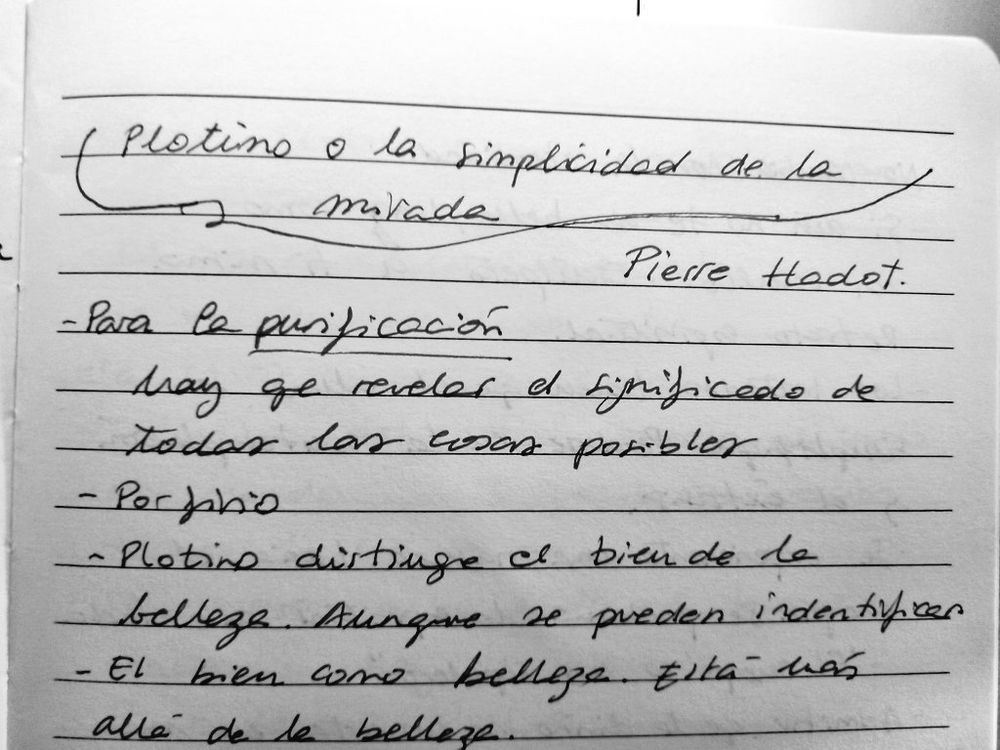 Plotino o la simplicidad de la
mirada
Pierre Hadot.
-Para la purificación
hay qe revelar el significado de
todas las cosas posibles
- Porfirio
- Plotino distingue el bien de la
belleza. Aunque se pueden indentifican
- El bien como belleza. Está más
allá de la belleza.